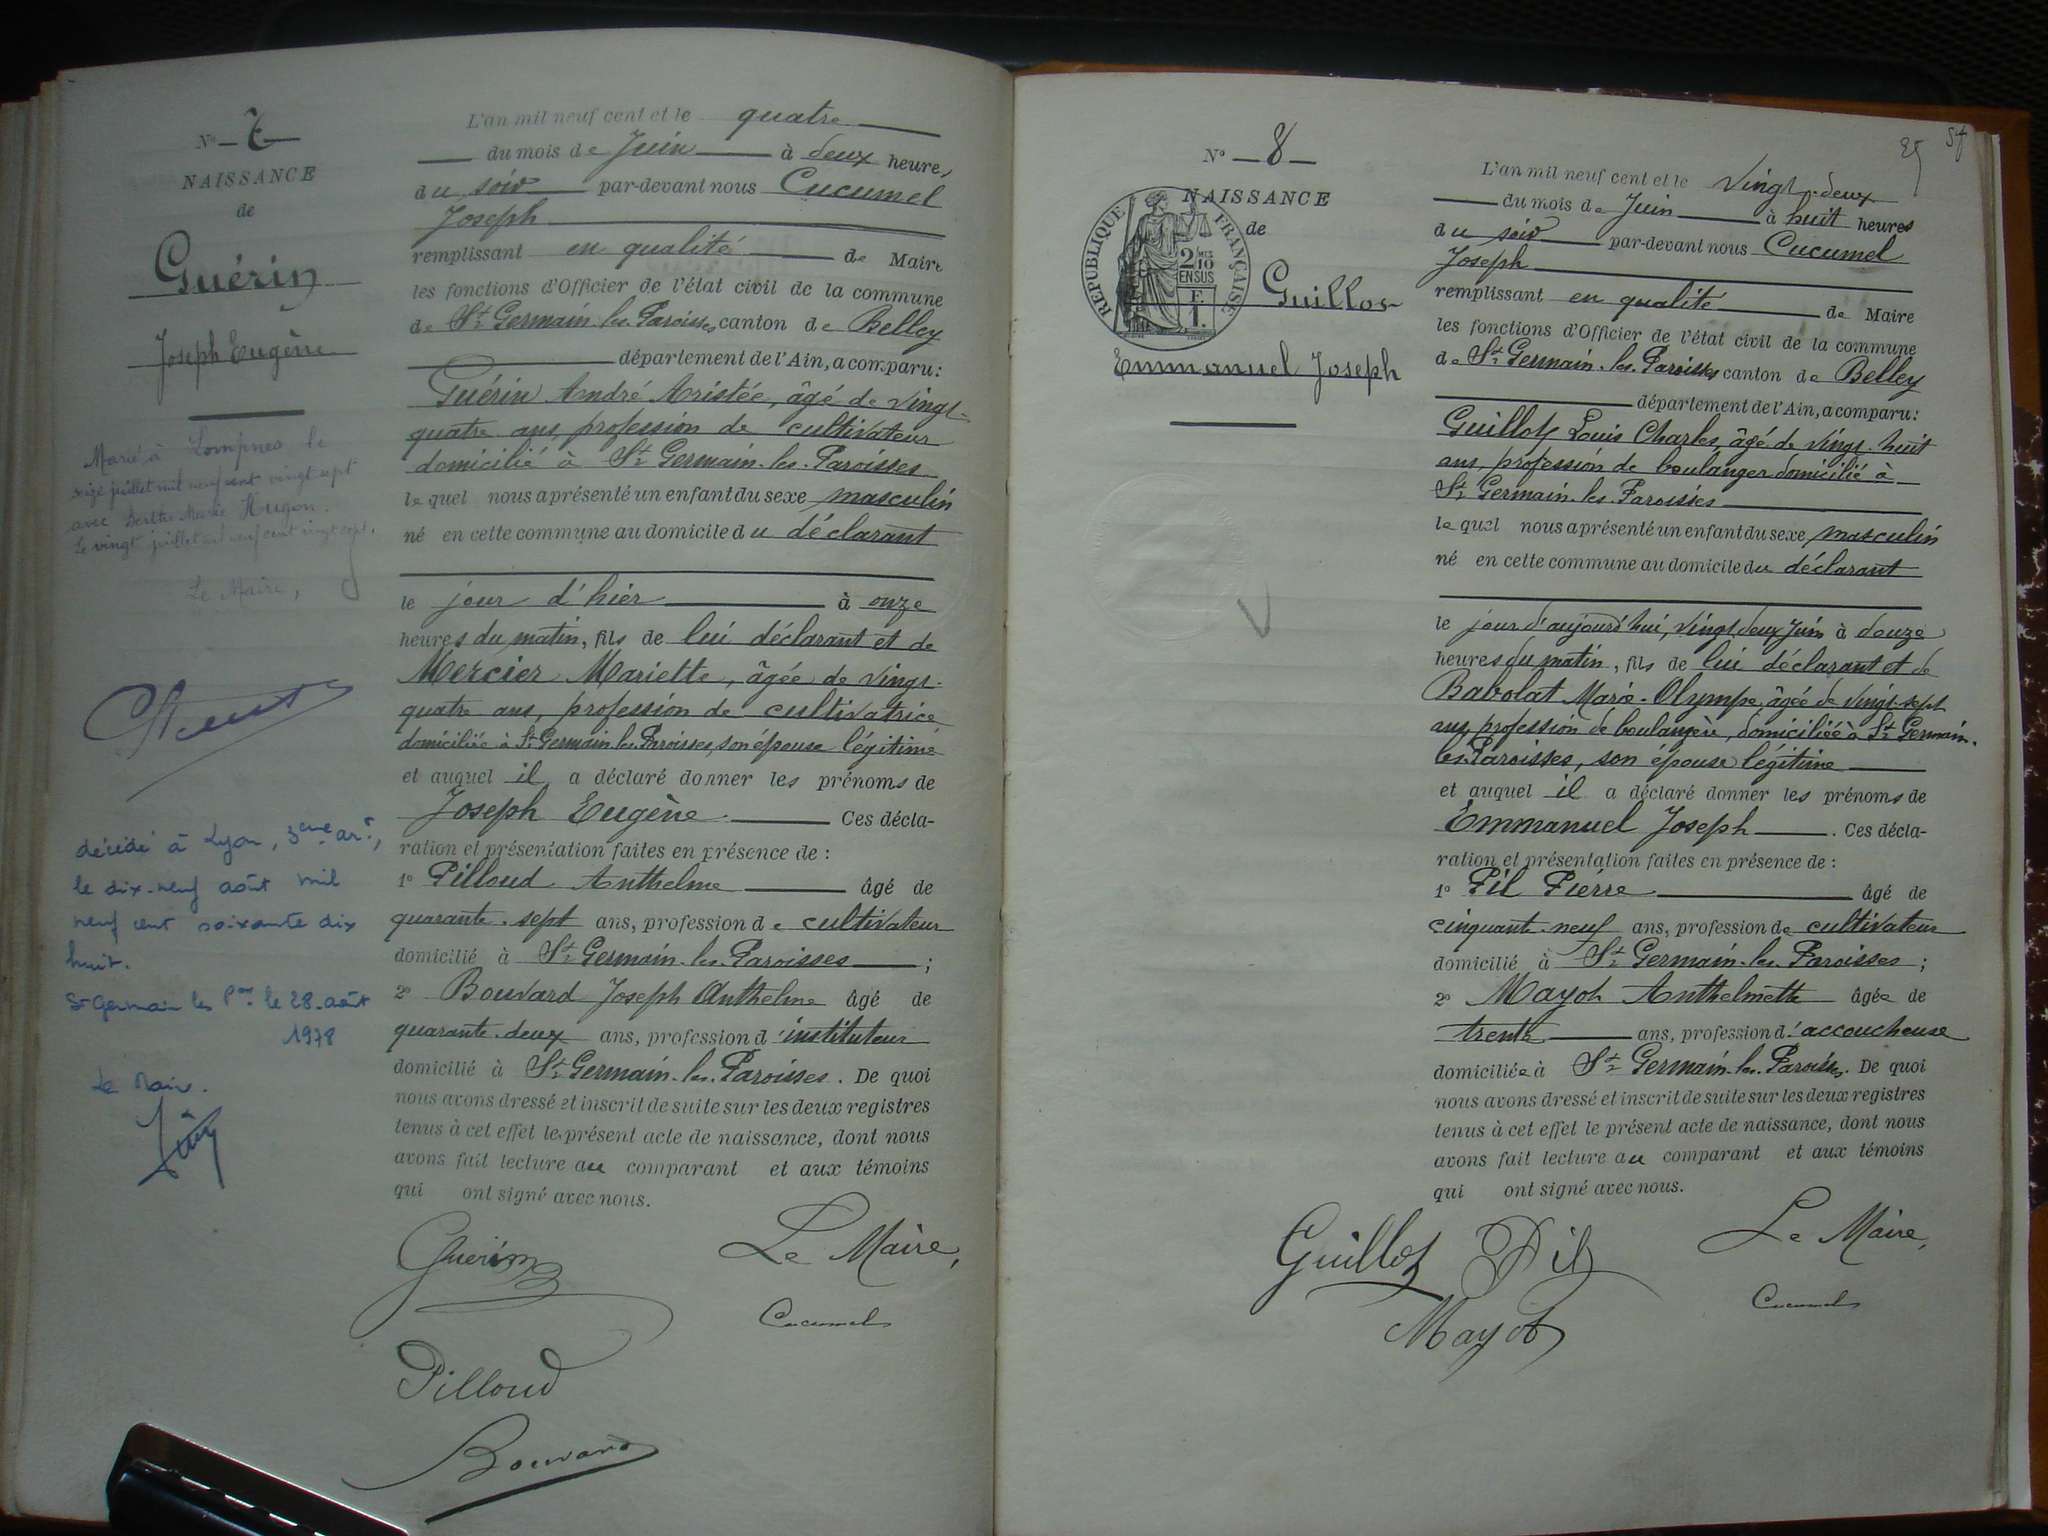 N° 7
NAISSANCE
de
Guérin
Joseph Eugène
Marié à Lompnes le
seize juillet mil neuf cent vingt sept
avec Berthe Marie Hugon.
Le vingt juillet mil neuf cent vingt sept.
Le Maire,
décédé à Lyon, 3eme arr.t,
le dix-neuf août mil
neuf cent soixante dix
huit.
St Germain les P. le 28 août
1978
Le Maire.
L'an mil neuf cent et le quatre
du mois de Juin à deux heures
du soir par-devant nous Cucumel
Joseph
remplissant en qualité de Maire
les fonctions d'Officier de l'état civil de la commune
de St Germain-les-Paroisses canton de Belley
département de l'Ain, a comparu:
Guérin André Aristée, âgé de vingt-
quatre ans, profession de cultivateur
domicilié à St Germain-les-Paroisses
lequel nous a présenté un enfant du sexe masculin
né en cette commune au domicile du déclarant
le jour d'hier à onze
heures du matin, fils de lui déclarant et de
Mercier Mariette, âgée de vingt-
quatre ans, profession de cultivatrice
domiciliée à St Germain-les-Paroisses, son épouse légitime
et auquel il a déclaré donner les prénoms de
Joseph Eugène. Ces décla-
ration et présentation faites en présence de :
1° Pilloud Anthelme âgé de
quarante-sept ans, profession de cultivateur
domicilié à St Germain-les-Paroisses ;
2° Bouvard Joseph Anthelme âgé de
quarante-deux ans, profession d'instituteur
domicilié à St Germain-les-Paroisses. De quoi
nous avons dressé et inscrit de suite sur les deux registres
tenus à cet effet le présent acte de naissance, dont nous
avons fait lecture au comparant et aux témoins
qui ont signé avec nous.
Guérin Le Maire,
Cucumel
Pilloud
Bouvard
85 54
N° 8
NAISSANCE
de
RÉPUBLIQUE FRANÇAISE
2/10 EN SUS
F. 1.
Guillot
Emmanuel Joseph
L'an mil neuf cent et le vingt-deux
du mois de Juin à huit heures
du soir par-devant nous Cucumel
Joseph
remplissant en qualité de Maire
les fonctions d'Officier de l'état civil de la commune
de St Germain-les-Paroisses canton de Belley
département de l'Ain, a comparu:
Guillot Louis Charles, âgé de vingt-huit
ans, profession de boulanger domicilié à
St Germain-les-Paroisses
lequel nous a présenté un enfant du sexe masculin
né en cette commune au domicile du déclarant
le jour d'aujourd'hui, vingt deux Juin à douze
heures du matin, fils de lui déclarant et de
Babolat Marie-Olympe, âgée de vingt-sept
ans, profession de boulangère, domiciliée à St Germain-
les-Paroisses, son épouse légitime
et auquel il a déclaré donner les prénoms de
Emmanuel Joseph. Ces décla-
ration et présentation faites en présence de :
1° Pil Pierre âgé de
cinquante-neuf ans, profession de cultivateur
domicilié à St Germain-les-Paroisses ;
2° Mayot Anthelmette âgée de
trente ans, profession d'accoucheuse
domiciliée à St Germain-les-Paroisses. De quoi
nous avons dressé et inscrit de suite sur les deux registres
tenus à cet effet le présent acte de naissance, dont nous
avons fait lecture au comparant et aux témoins
qui ont signé avec nous.
Guillot Pil Le Maire,
Mayot Cucumel